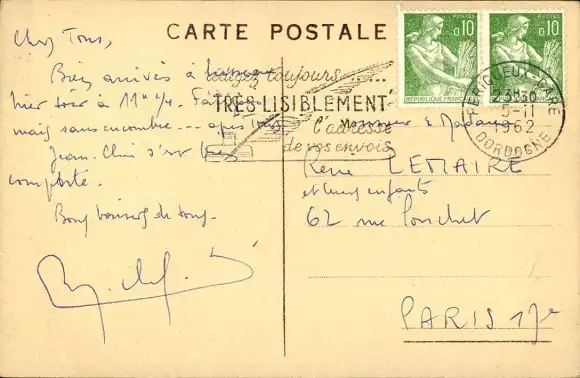 CARTE POSTALE
Chers Tous,
Bien arrivés à
hier soir à 11h 1/4.
mais sans encombre... après tout.
Jean. s'est bien
comporté.
Bons baisers de tous.
rédigez toujours.....
TRÈS LISIBLEMENT
l'adresse
de vos envois
POSTES 0,10
REPUBLIQUE FRANÇAISE
POSTES 0,10
PERIGUEUX-GARE
23H30
5-11
1962
DORDOGNE
Monsieur & Madame
René LEMAIRE
et leurs enfants
62 rue Pouchet
PARIS 17e